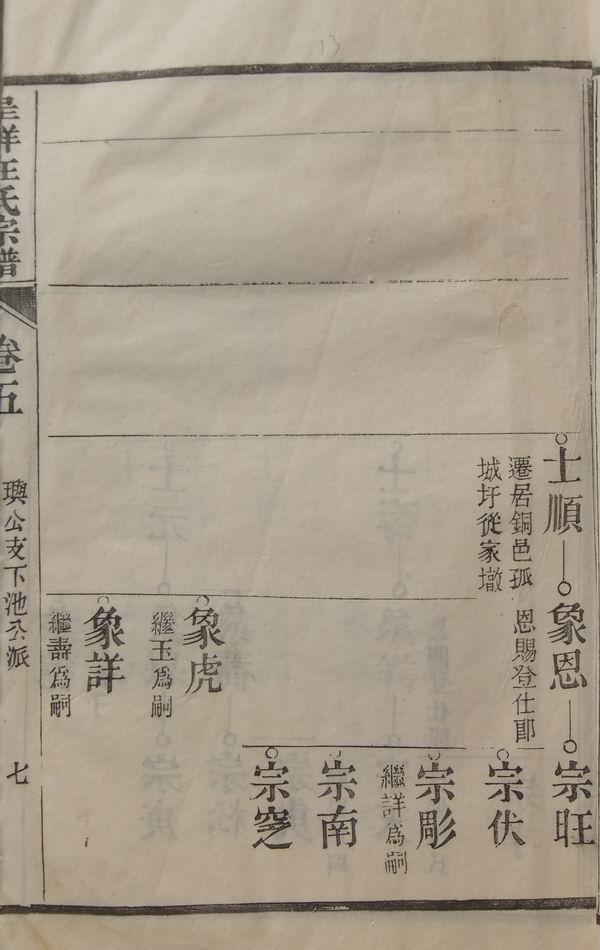 士順
遷居銅邑孤
城圩從家墩
象恩
恩賜登仕郎
象虎
繼玉爲嗣
象詳
繼壽爲嗣
宗旺
宗伏
宗彫
繼詳爲嗣
宗南
宗
汪氏宗譜
卷五
璵公支下池公派
七